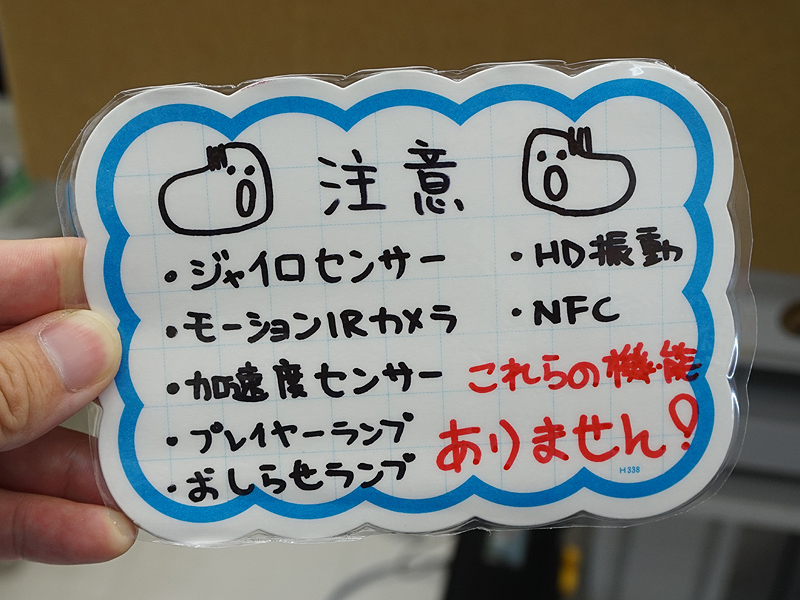 注意
・ジャイロセンサー
・モーションIRカメラ
・加速度センサー
・プレイヤーランプ
・おしらせランプ
・HD振動
・NFC
これらの機能
ありません!
H338